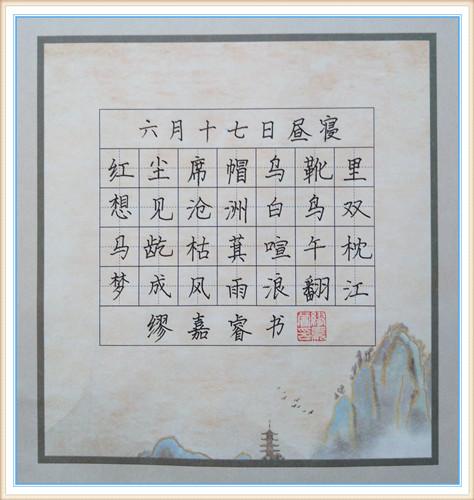 六月十七日昼寝
红尘席帽乌靴里
想见沧洲白鸟双
马龁枯萁喧午枕
梦成风雨浪翻江
缪嘉睿书